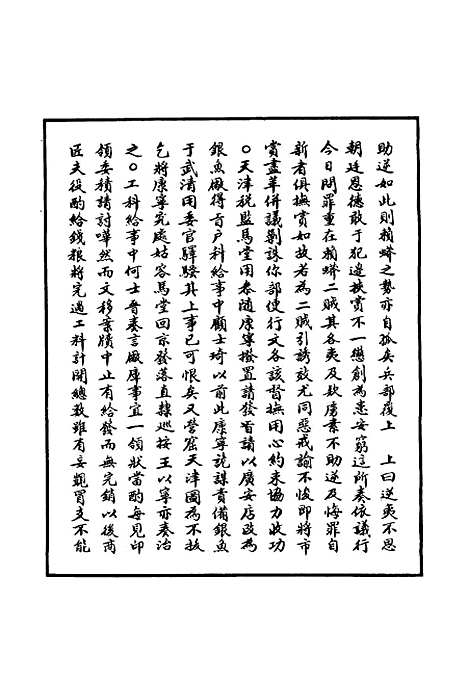 助逆如此則賴蟒之勢亦自孤矣兵部覆上　上曰逆夷不思
朝廷恩德敢于犯邊挾賞不一懲創為患安窮這所奏依議行
今日問罪重在賴蟒二賊其各夷及款虜素不助逆及悔罪自
新者俱撫賞如故若為二賊引誘效尤同惡戒諭不悛即將市
賞盡革併議剿誅你部使行文各該督撫用心約束協力收功
○天津稅監馬堂用參隨康寧撥置請發旨請以廣安店改為
銀魚廠得旨户科給事中顧士琦以前此康寧詭謀責備銀魚
于武清用委官驛騷其上事已可恨矣又營窟天津圖為不拔
乞將康寧究處姑容馬堂回京發落直隸巡按王以寧亦奏治
之○工科給事中何士晉奏言廠庫事宜一領狀當酌每見印
領委積請討嘩然而文移案牘中止有給發而無完銷以後商
匠夫役酌給錢粮將完過工料計開總數雖有妄覬冒支不能